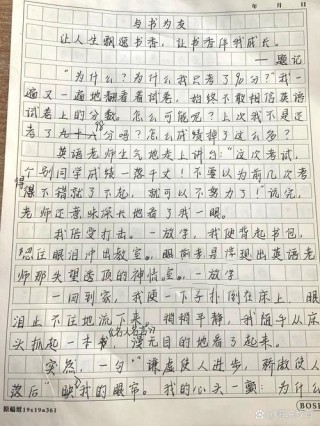 年 月 日
与书为友
让人生飘逸书香，让书香伴我成长。
——题记
“为什么？为什么我只考了90分？”我一
遍又一遍地翻看着试卷，始终不敢相信英语
试卷上的分数。怎么可能呢？上次我不是还
考了九十六98分吗？怎么成绩掉了这么多？
英语老师生气地走上讲台：“这次考试，
个别同学成绩一落千丈！不要以为前几次考
得不错就了不起，就可以不努力了！”说完，
老师还意味深长地看了我一眼。
我倍受打击。一放学，我便背起书包，
忍住眼泪冲出教室。眼前老是浮现出英语老
师那失望透顶的神情。一放学
一回到家，我便一下子扑倒在床上，眼
泪止不住地流下来。稍稍平静，我随手从床
头抓起一本书《名人名言》，漫无目的地看了起来。
突然，一句“谦虚使人进步，骄傲使人
落后”映入我的眼帘。我的心头一颤：为什么
原稿纸19x19=361
BOSH